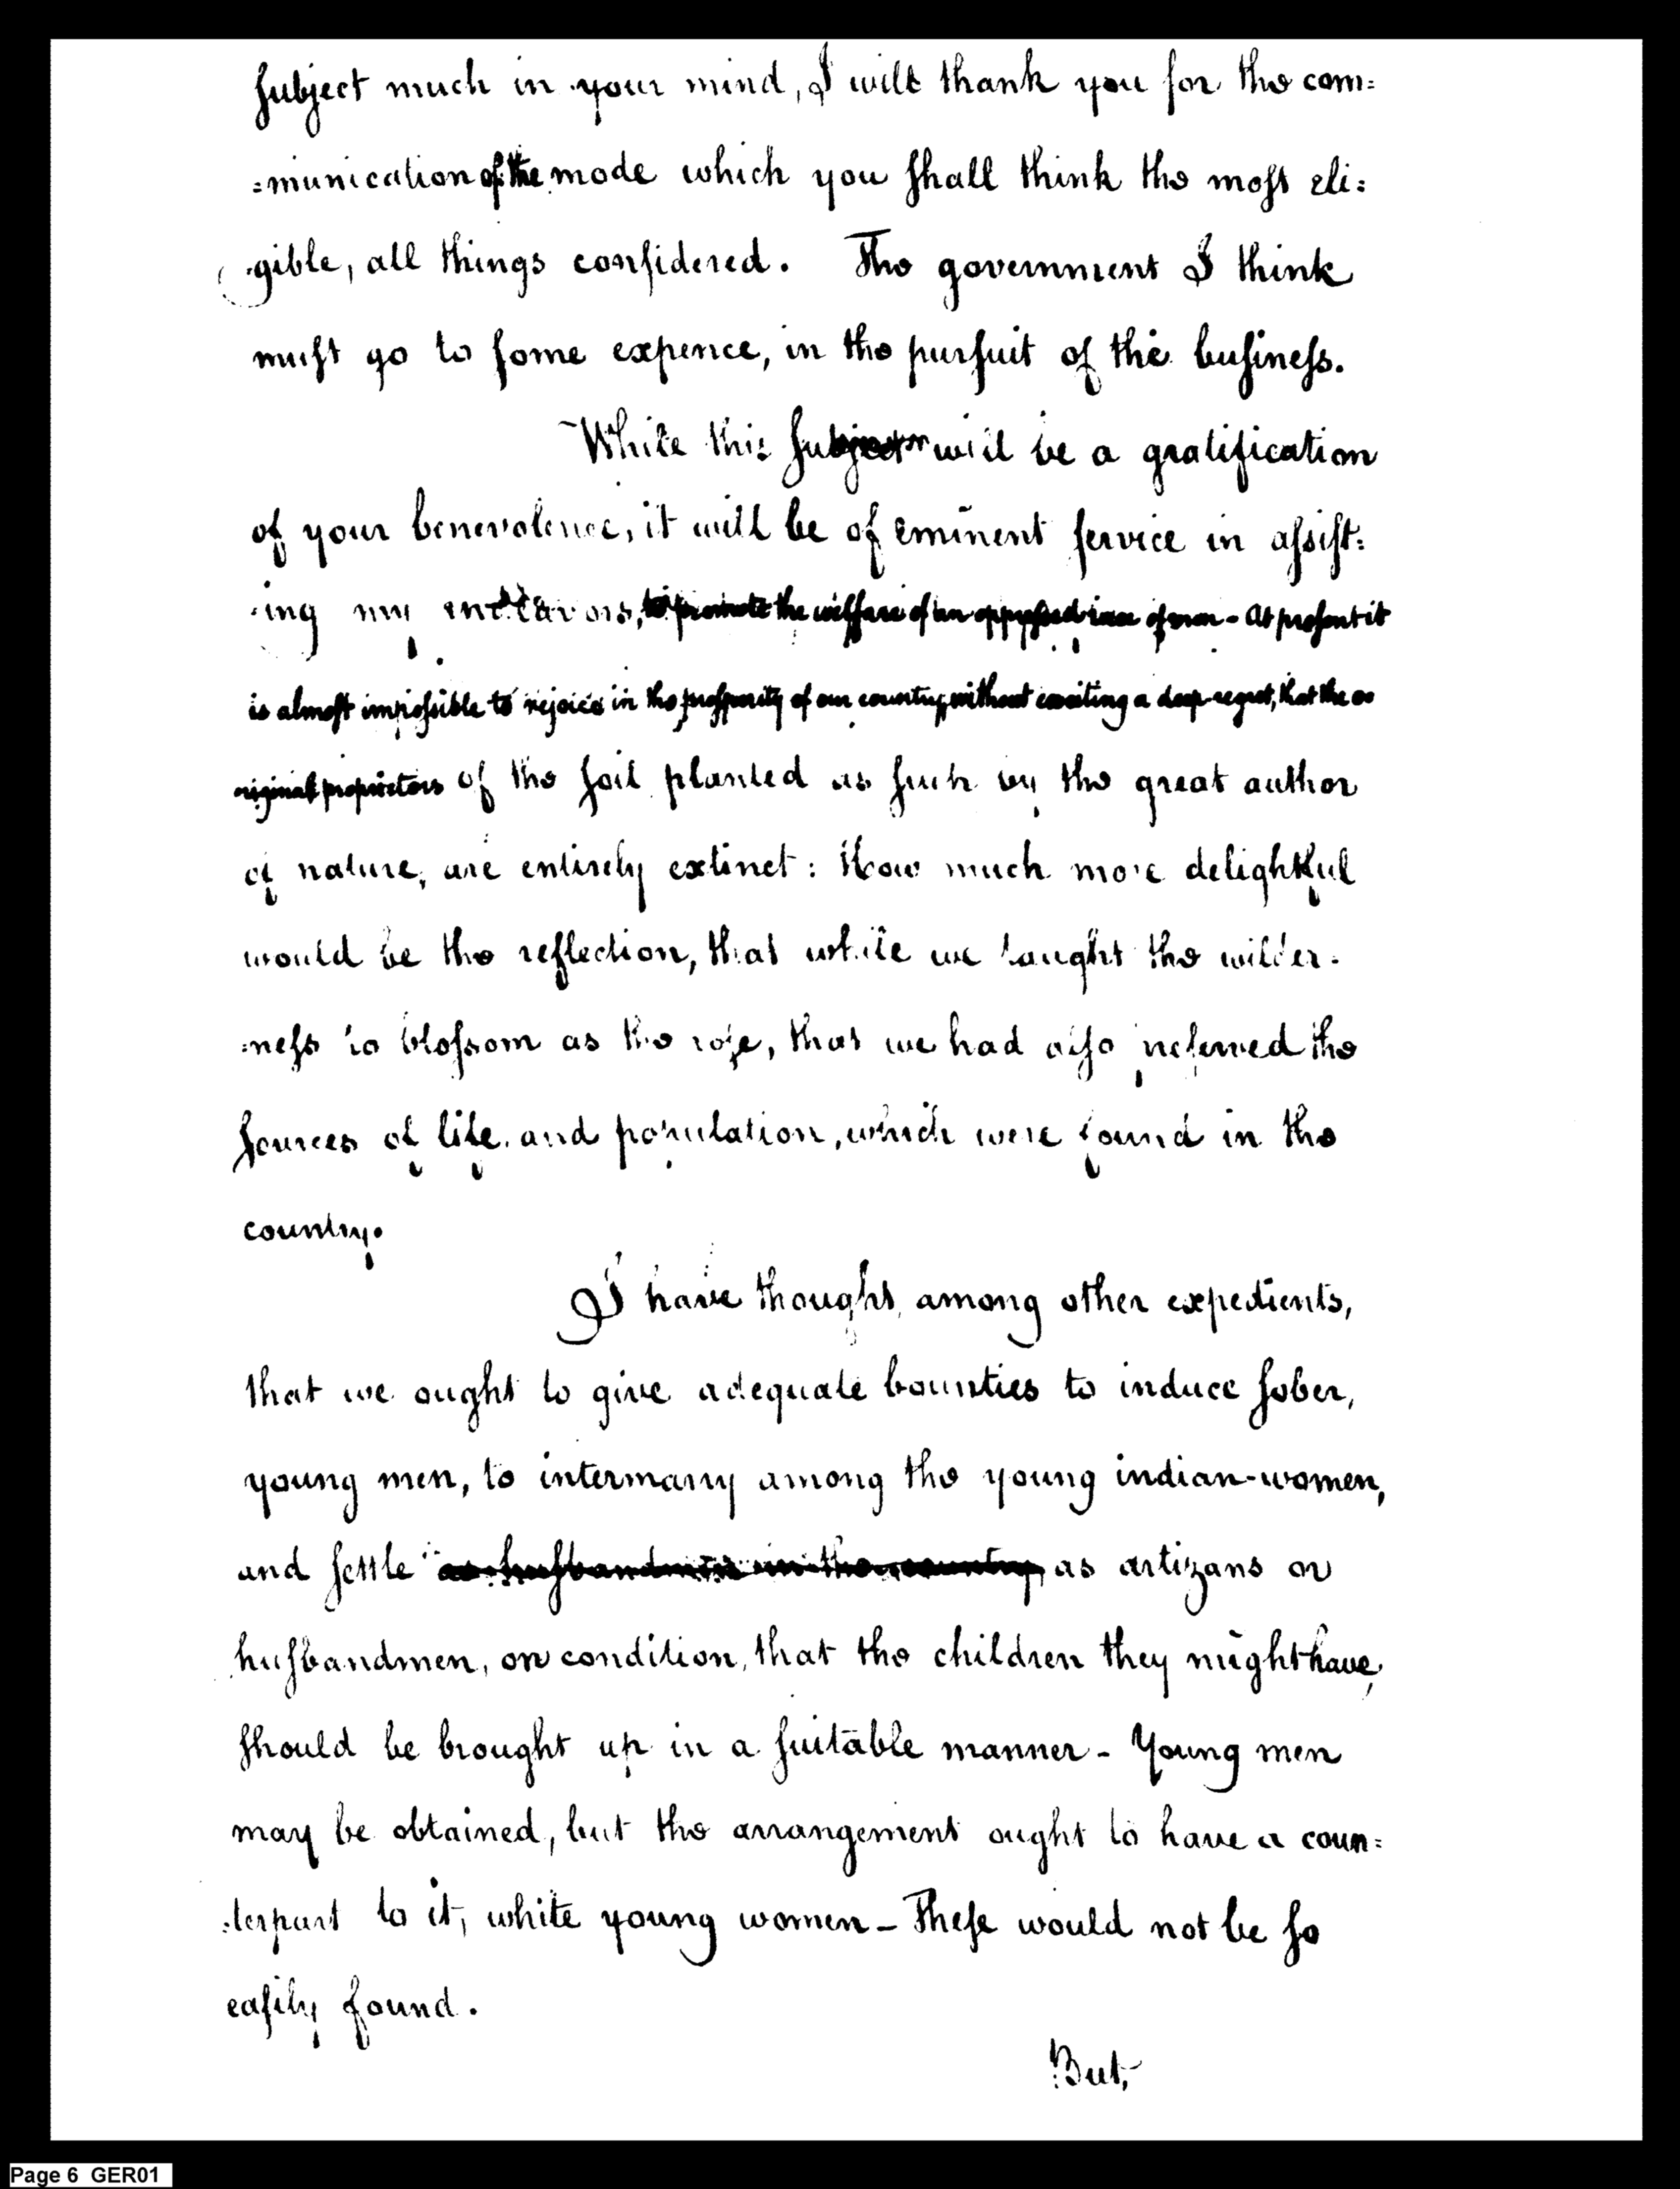 subject much in your mind, I will thank you for the com=
=munication of the mode which you shall think the most eli=
gible, all things considered. The government I think
must go to some expence, in the pursuit of the business.
While this subject will be a gratification
of your benevolence, it will be of eminent service in assist=
ing my endeavors, to promote the welfare of an oppressed race of men - At present it
is almost impossible to rejoice in the prosperity of our country, without exciting a deep regret, that the o
riginal proprietors of the soil planted as such by the great author
of nature, are entirely extinct: How much more delightful
would be the reflection, that while we taught the wilder=
=ness to blossom as the rose, that we had also preserved the
sources of life and population, which were found in the
country.
I have thought, among other expedients,
that we ought to give adequate bounties to induce sober,
young men, to intermarry among the young indian-women,
and settle as husbandmen in the country as artizans or
husbandmen, on condition, that the children they might have,
should be brought up in a suitable manner - Young men
may be obtained, but the arrangement ought to have a coun=
=terpart to it, white young women - These would not be so
easily found.
But,
Page 6 GER01